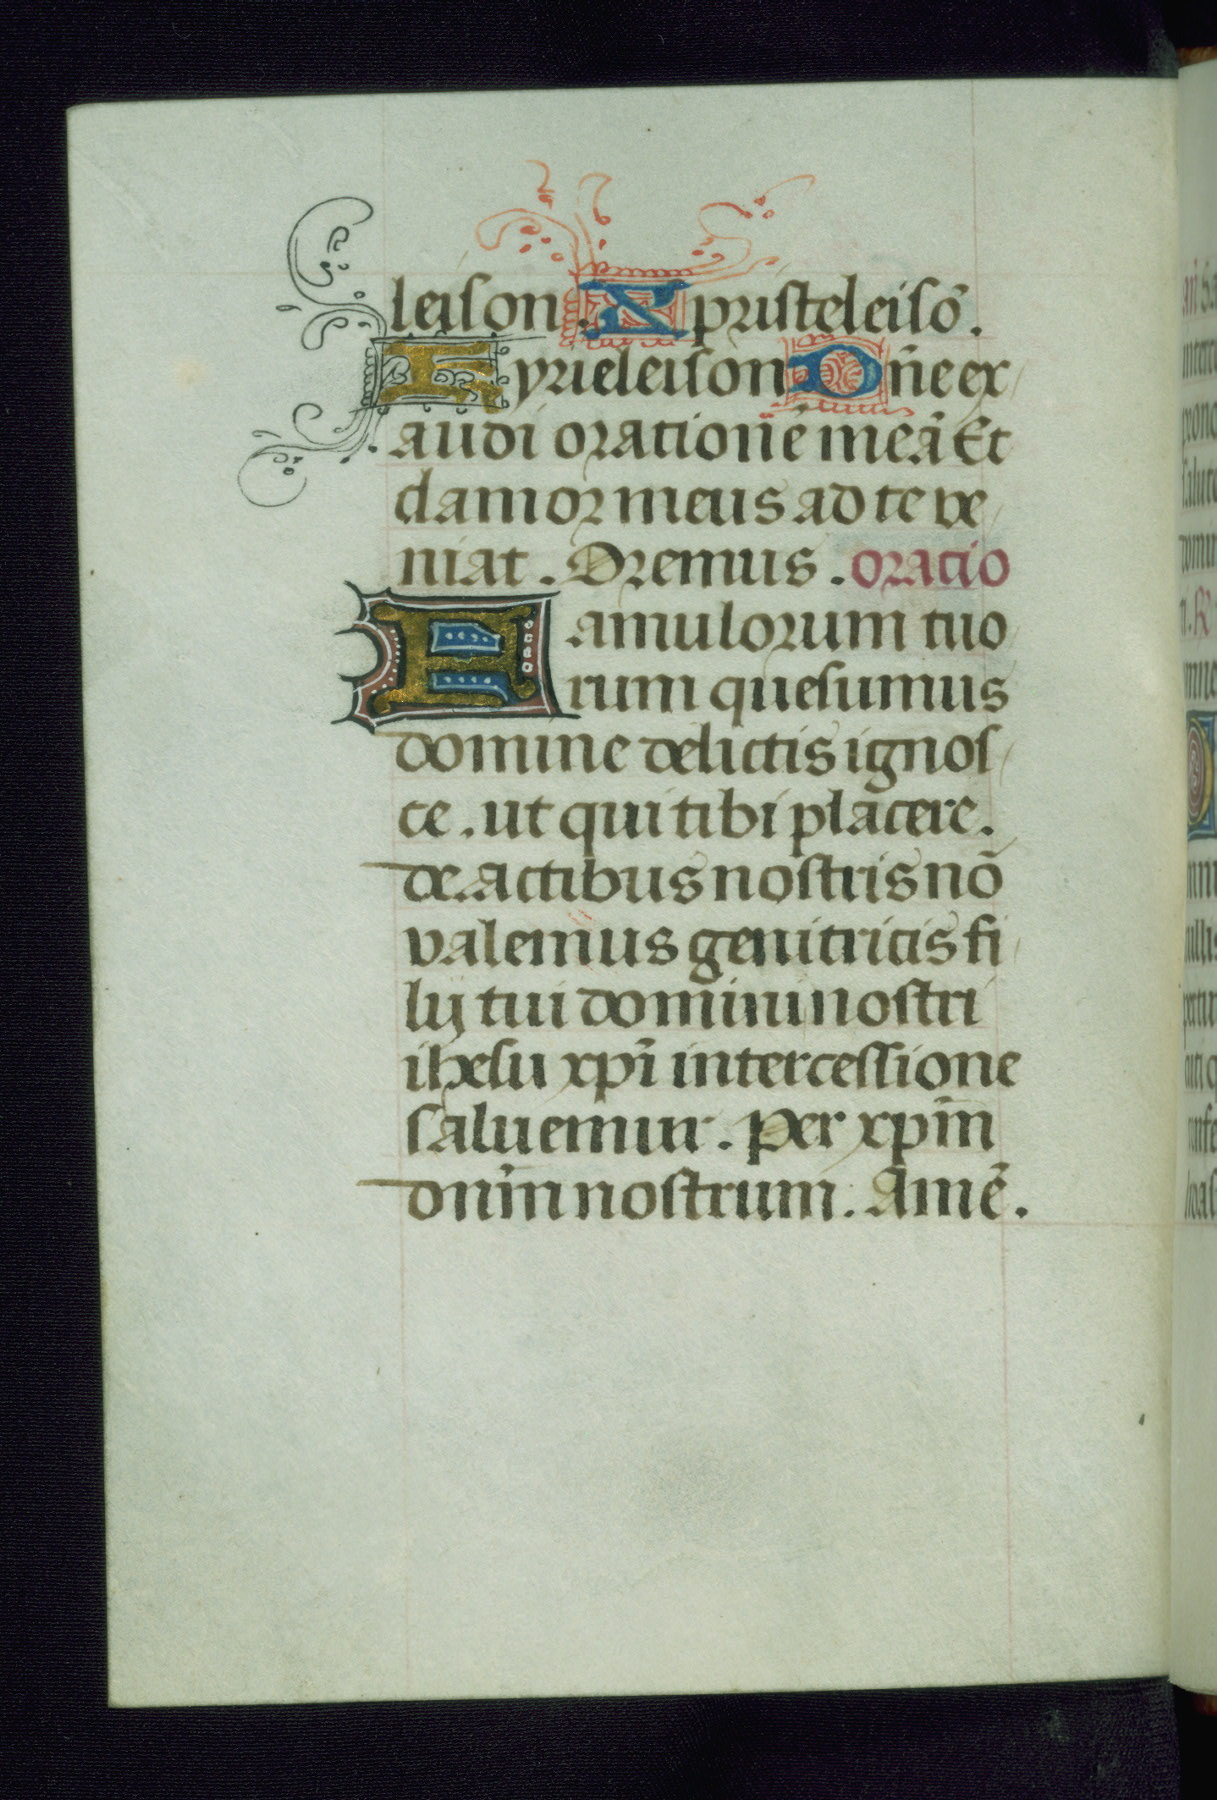 leison. Xpristeleisō.
Kyrieleison Dn̄e ex
audi orationē meā Et
clamor meus ad te ve
niat. Oremus. oratio
Famulorum tuo
rum quesumus
domine delictis ignos
ce. ut qui tibi placere.
de actibus nostris nō
valemus genitricis fi
lij tui domini nostri
ihesu xpī intercessione
saluemur. Per xpm̄
dnm̄ nostrum. Amē.